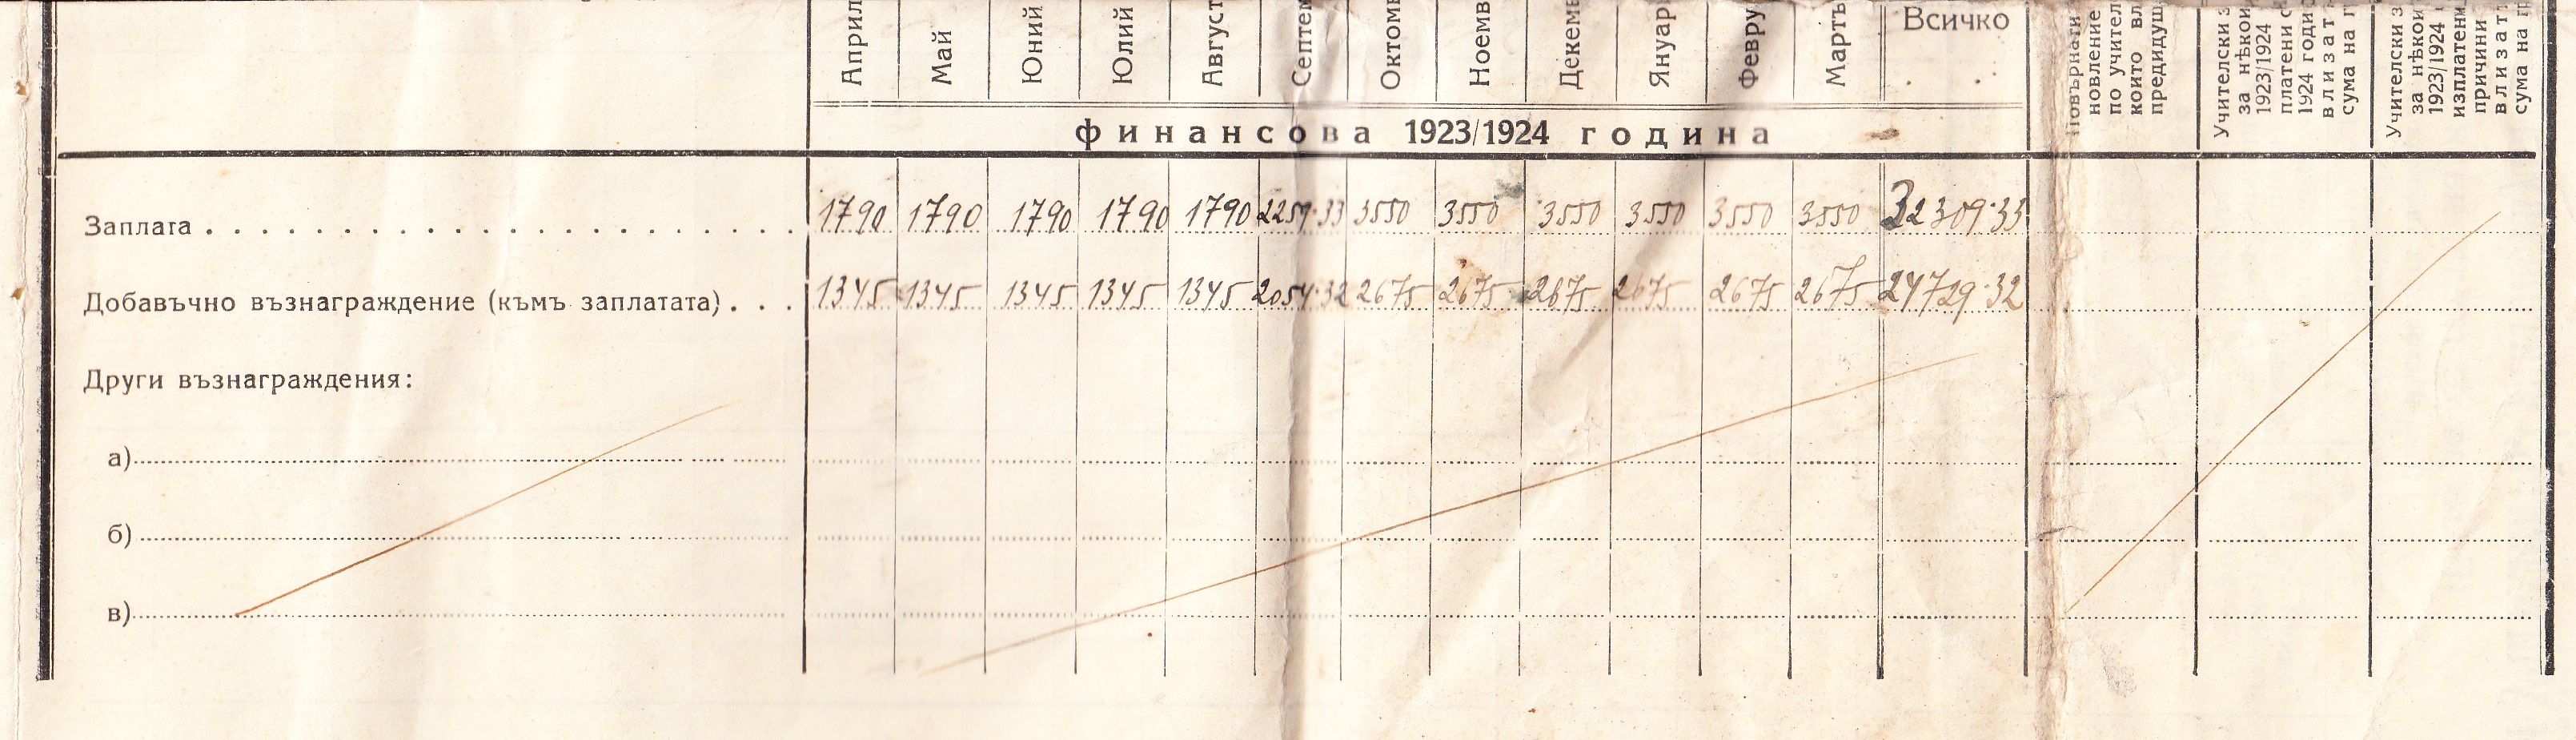 Април
Май
Юний
Юлий
Август
Септем
Октом
Ноемв
Декем
Януар
Февру
Мартъ
Всичко
повърнати
новление
по учител
които вл
предидущ
Учителски з
за нѣкои
1923/1924
платени с
1924 годи
влизат
сума на г
Учителски з
за нѣкои
1923/1924
изплатени
причини
влизат
сума на гр
финансова 1923/1924 година
Заплага 1790 1790 1790 1790 1790 2259·33 3550 3550 3550 3550 3550 3550 32309·33
Добавъчно възнаграждение (къмъ заплатата) 1345 1345 1345 1345 1345 2054·32 2675 2675 2675 2675 2675 2675 24729·32
Други възнаграждения:
а)
б)
в)